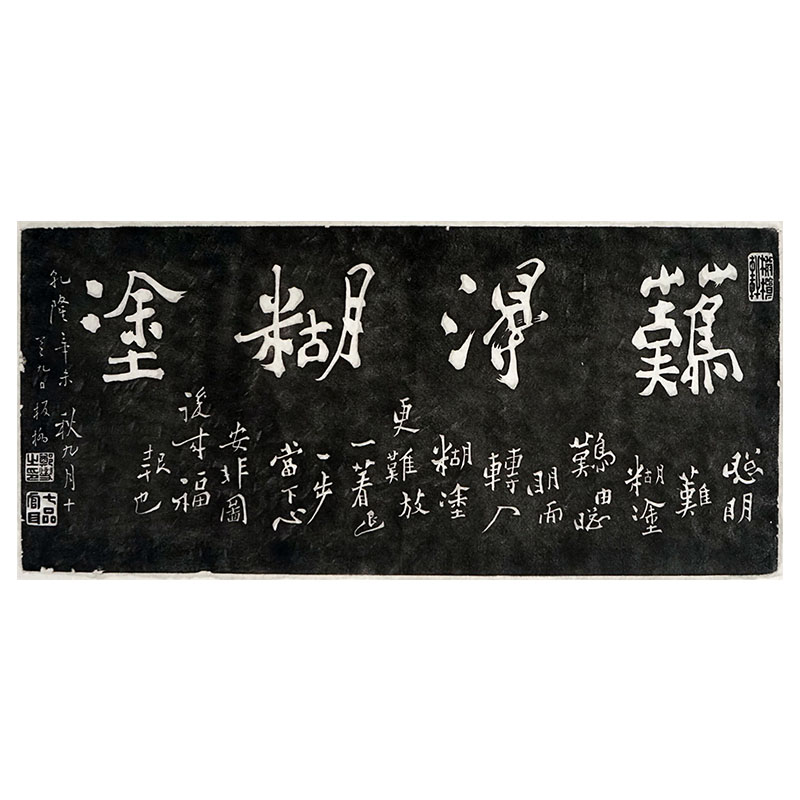 難得糊塗
聰明
難
糊塗
難由聰
明而
轉入
糊塗
更難放
一著退
一步
當下心
安非圖
後來福
報也
乾隆辛未秋九月十
九日板橋
七品官耳